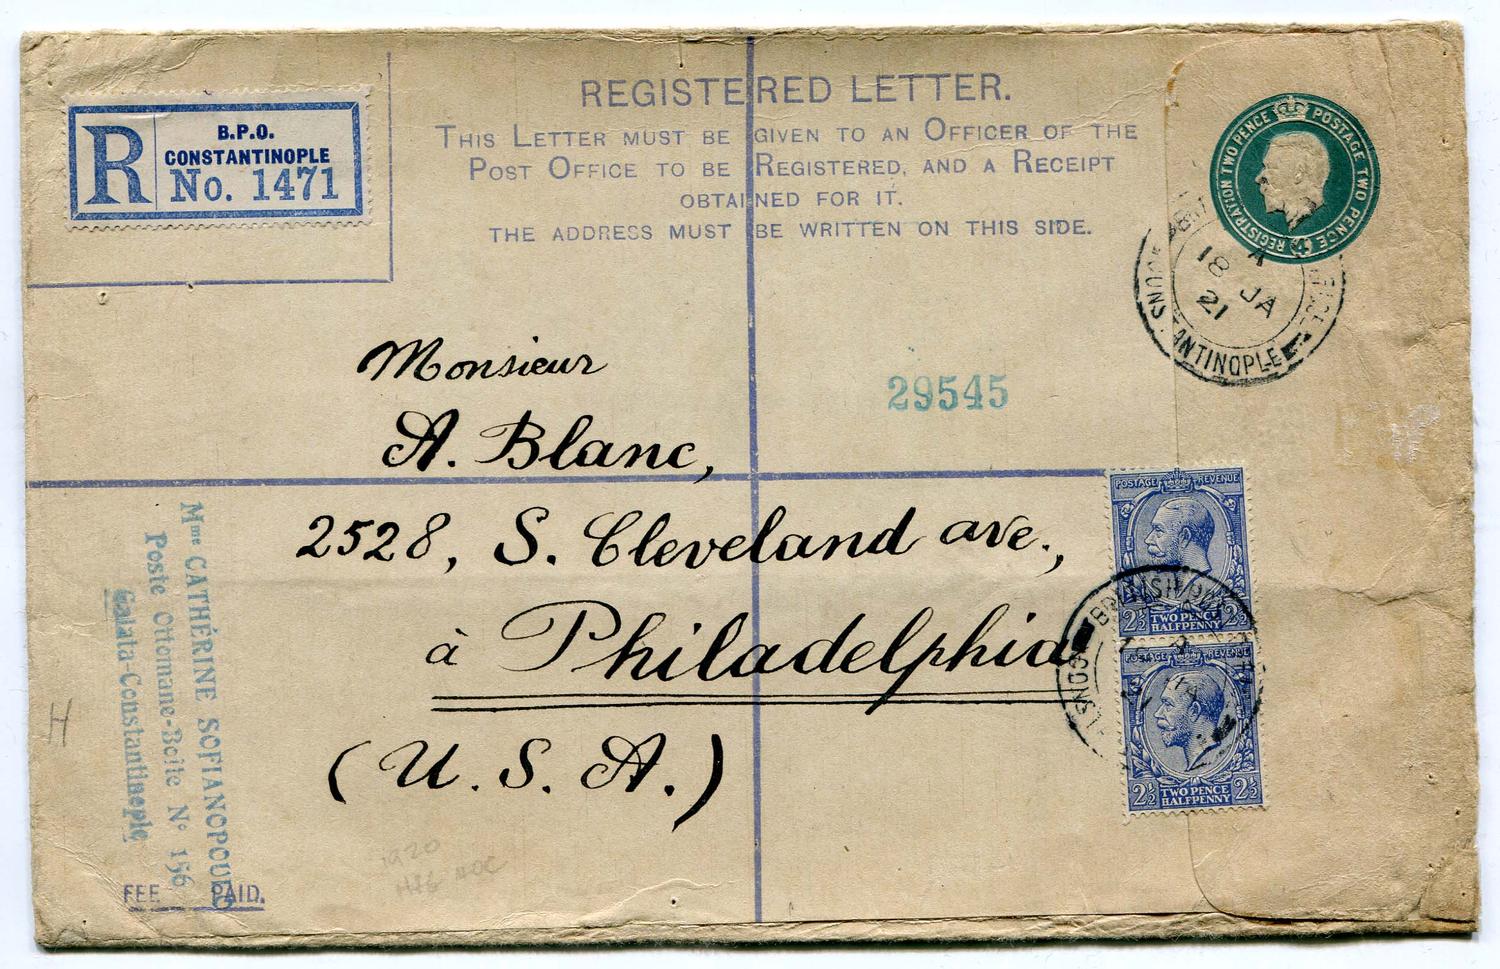 REGISTERED LETTER.
THIS LETTER MUST BE GIVEN TO AN OFFICER OF THE
POST OFFICE TO BE REGISTERED, AND A RECEIPT
OBTAINED FOR IT.
THE ADDRESS MUST BE WRITTEN ON THIS SIDE.
R
B.P.O.
CONSTANTINOPLE
No. 1471
REGISTRATION TWO PENCE POSTAGE TWO PENCE
4
A
18 JA
21
CONSTANTINOPLE
29545
Monsieur
A. Blanc,
2528, S. Cleveland ave.,
à Philadelphia
(U. S. A.)
POSTAGE REVENUE
2½ TWO PENCE HALFPENNY 2½
BRITISH
POSTAGE REVENUE
2½ TWO PENCE HALFPENNY 2½
Mme CATHÉRINE SOFIANOPOULO
Poste Ottomane-Boîte No 156
Galata-Constantinople
H
1920
FEE PAID.